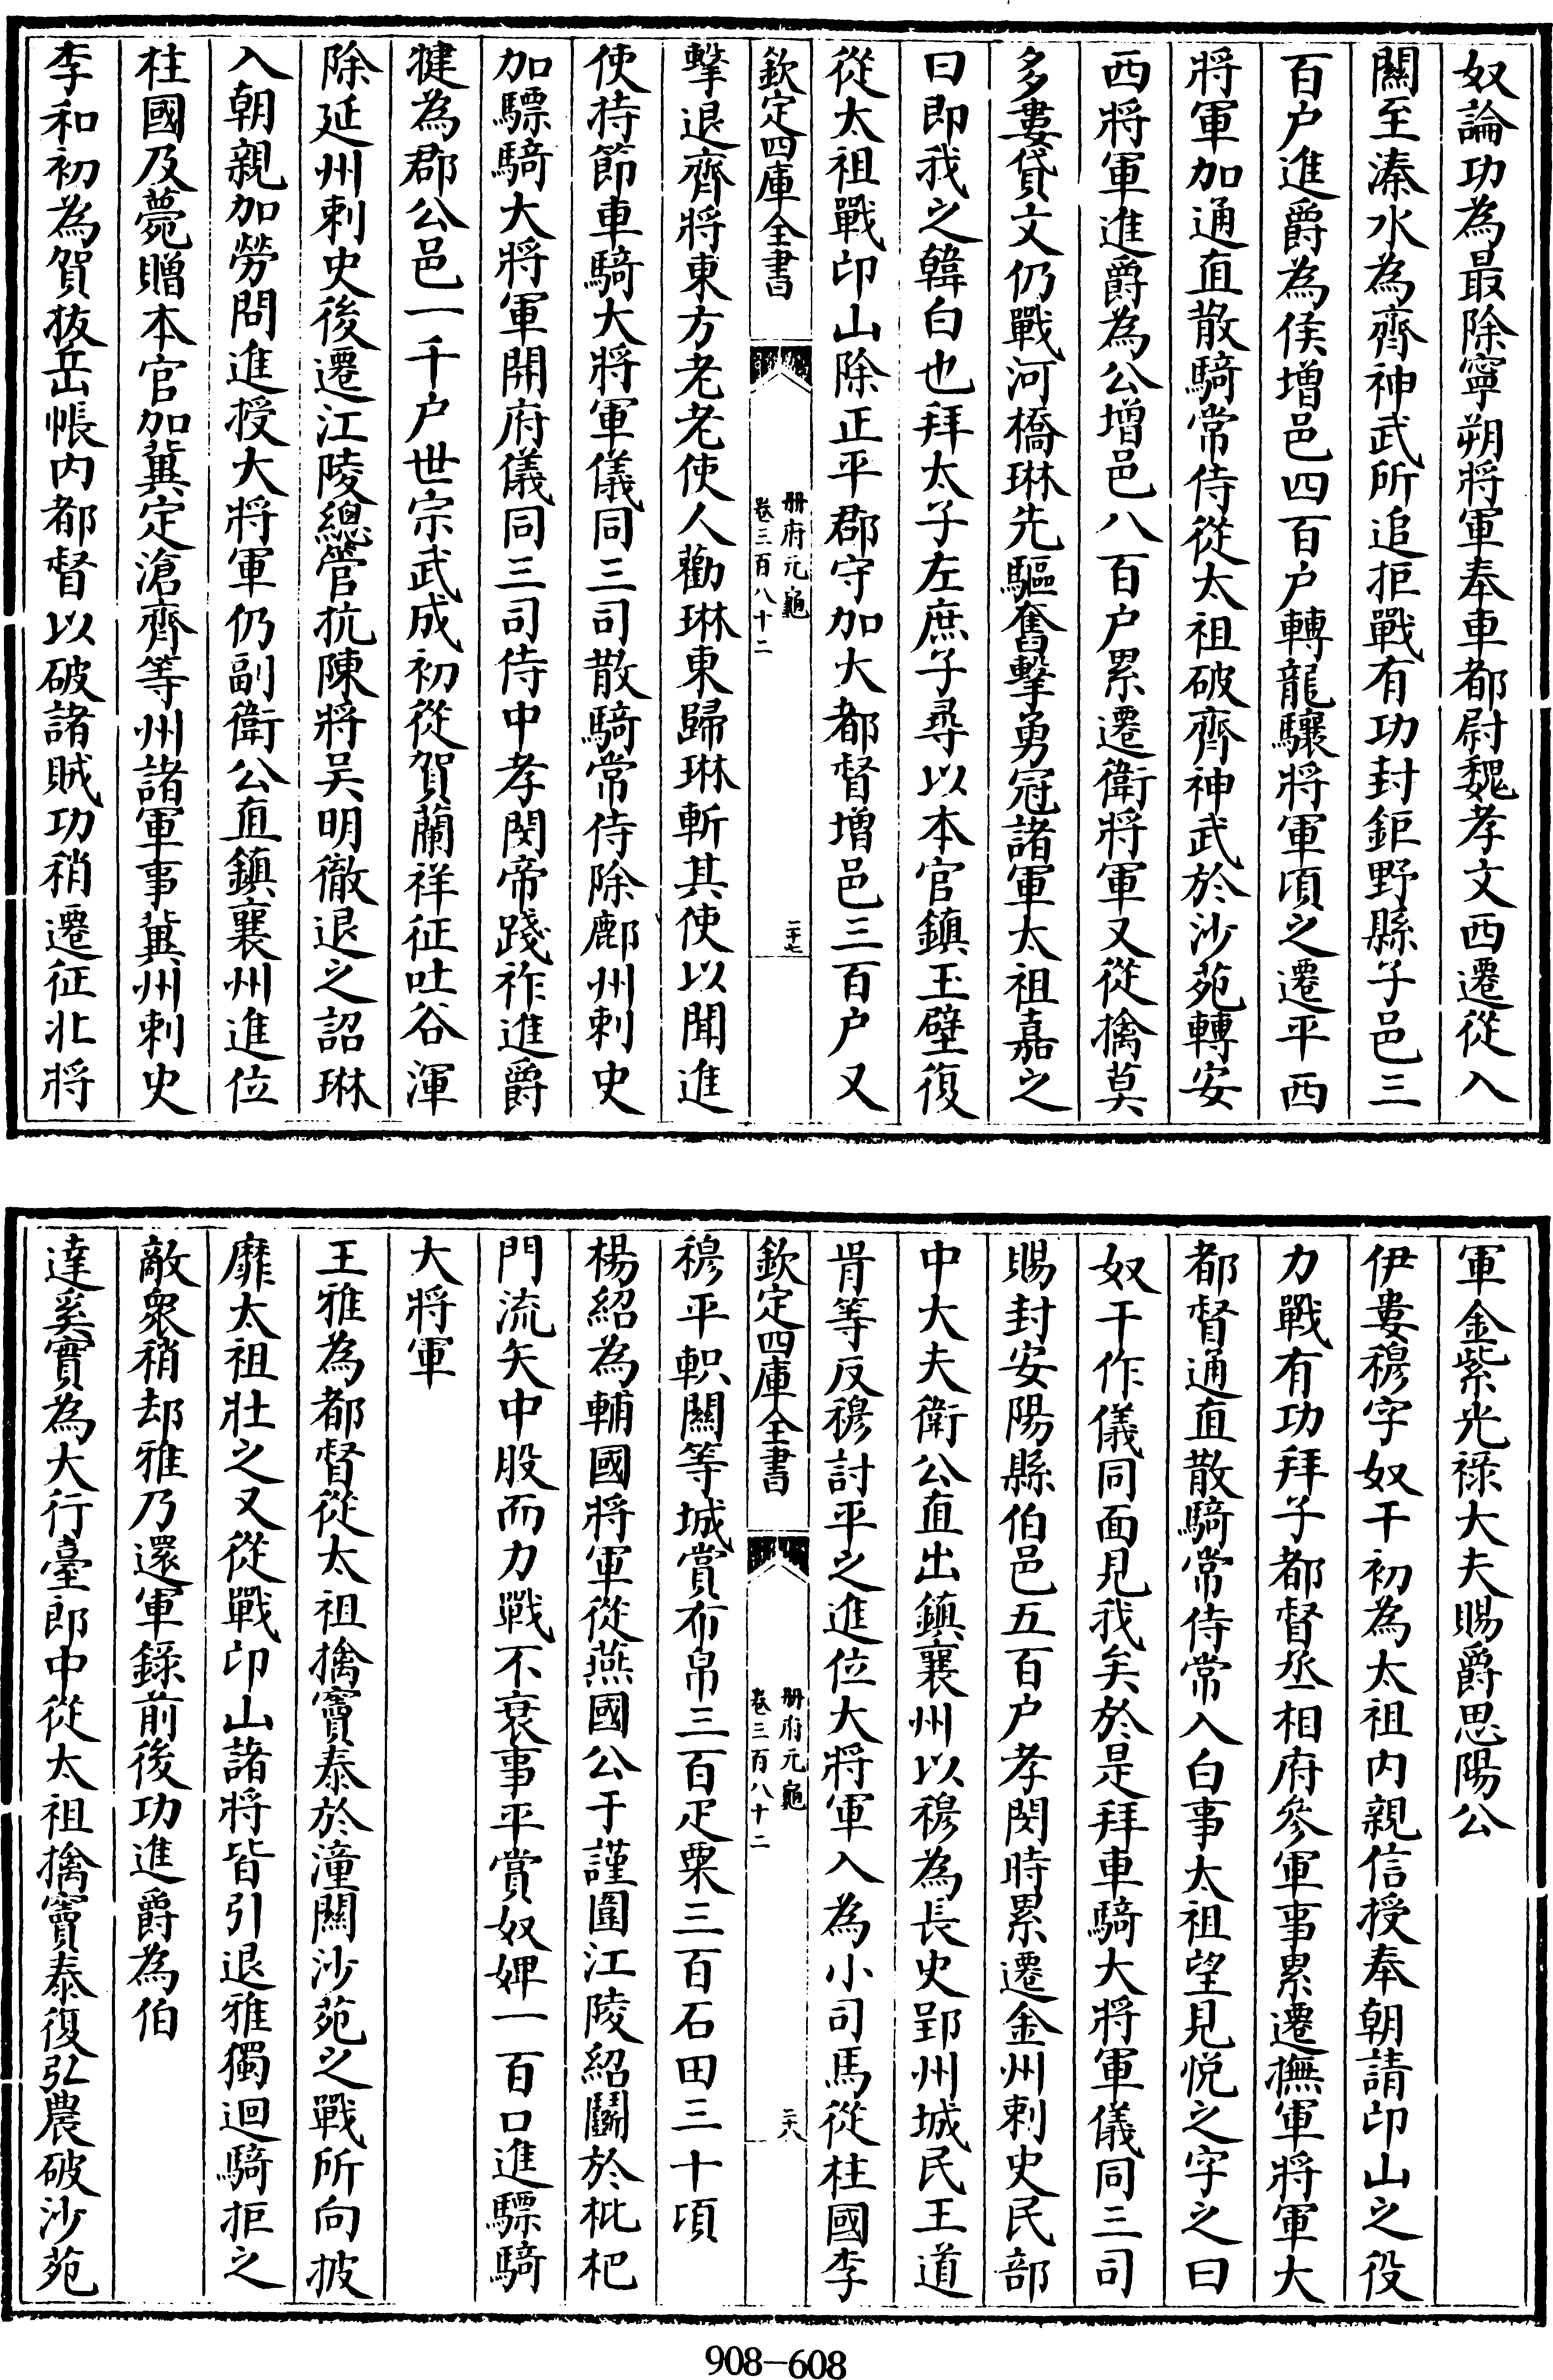 奴論功為最除寧朔將軍奉車都尉魏孝文西遷從入
關至溱水為齊神武所追拒戰有功封鉅野縣子邑三
百户進爵為侯增邑四百户轉龍驤將軍頃之遷平西
將軍加通直散騎常侍從太祖破齊神武於沙苑轉安
西將軍進爵為公增邑八百户累遷衛將軍又從擒莫
多婁貸文仍戰河橋琳先驅奮擊勇冠諸軍太祖嘉之
曰即我之韓白也拜太子左庶子尋以本官鎮玉壁復
從太祖戰卬山除正平郡守加大都督增邑三百户又
欽定四庫全書
册府元龜
卷三百八十二
二十七
擊退齊將東方老老使人勸琳東歸琳斬其使以聞進
使持節車騎大將軍儀同三司散騎常侍除鄜州刺史
加驃騎大將軍開府儀同三司侍中孝閔帝踐祚進爵
犍為郡公邑一千户世宗武成初從賀蘭祥征吐谷渾
除延州刺史後遷江陵總管抗陳將吴明徹退之詔琳
入朝親加勞問進授大將軍仍副衛公直鎮襄州進位
柱國及薨贈本官加冀定滄齊等州諸軍事冀州刺史
李和初為賀拔岳帳内都督以破諸賊功稍遷征北將
軍金紫光祿大夫賜爵思陽公
伊婁穆字奴干初為太祖内親信授奉朝請卬山之役
力戰有功拜子都督丞相府參軍事累遷撫軍將軍大
都督通直散騎常侍常入白事太祖望見悦之字之曰
奴干作儀同面見我矣於是拜車騎大將軍儀同三司
賜封安陽縣伯邑五百户孝閔時累遷金州刺史民部
中大夫衛公直出鎮襄州以穆為長史郢州城民王道
肯等反穆討平之進位大將軍入為小司馬從柱國李
欽定四庫全書
册府元龜
卷三百八十二
二十八
穆平軹關等城賞布帛三百疋粟三百石田三十頃
楊紹為輔國將軍從燕國公于謹圍江陵紹鬬於枇杷
門流矢中股而力戰不衰事平賞奴婢一百口進驃騎
大將軍
王雅為都督從太祖擒竇泰於潼關沙苑之戰所向披
靡太祖壯之又從戰卬山諸將皆引退雅獨迴騎拒之
敵衆稍却雅乃還軍錄前後功進爵為伯
達奚寔為大行臺郎中從太祖擒竇泰復弘農破沙苑
908-608